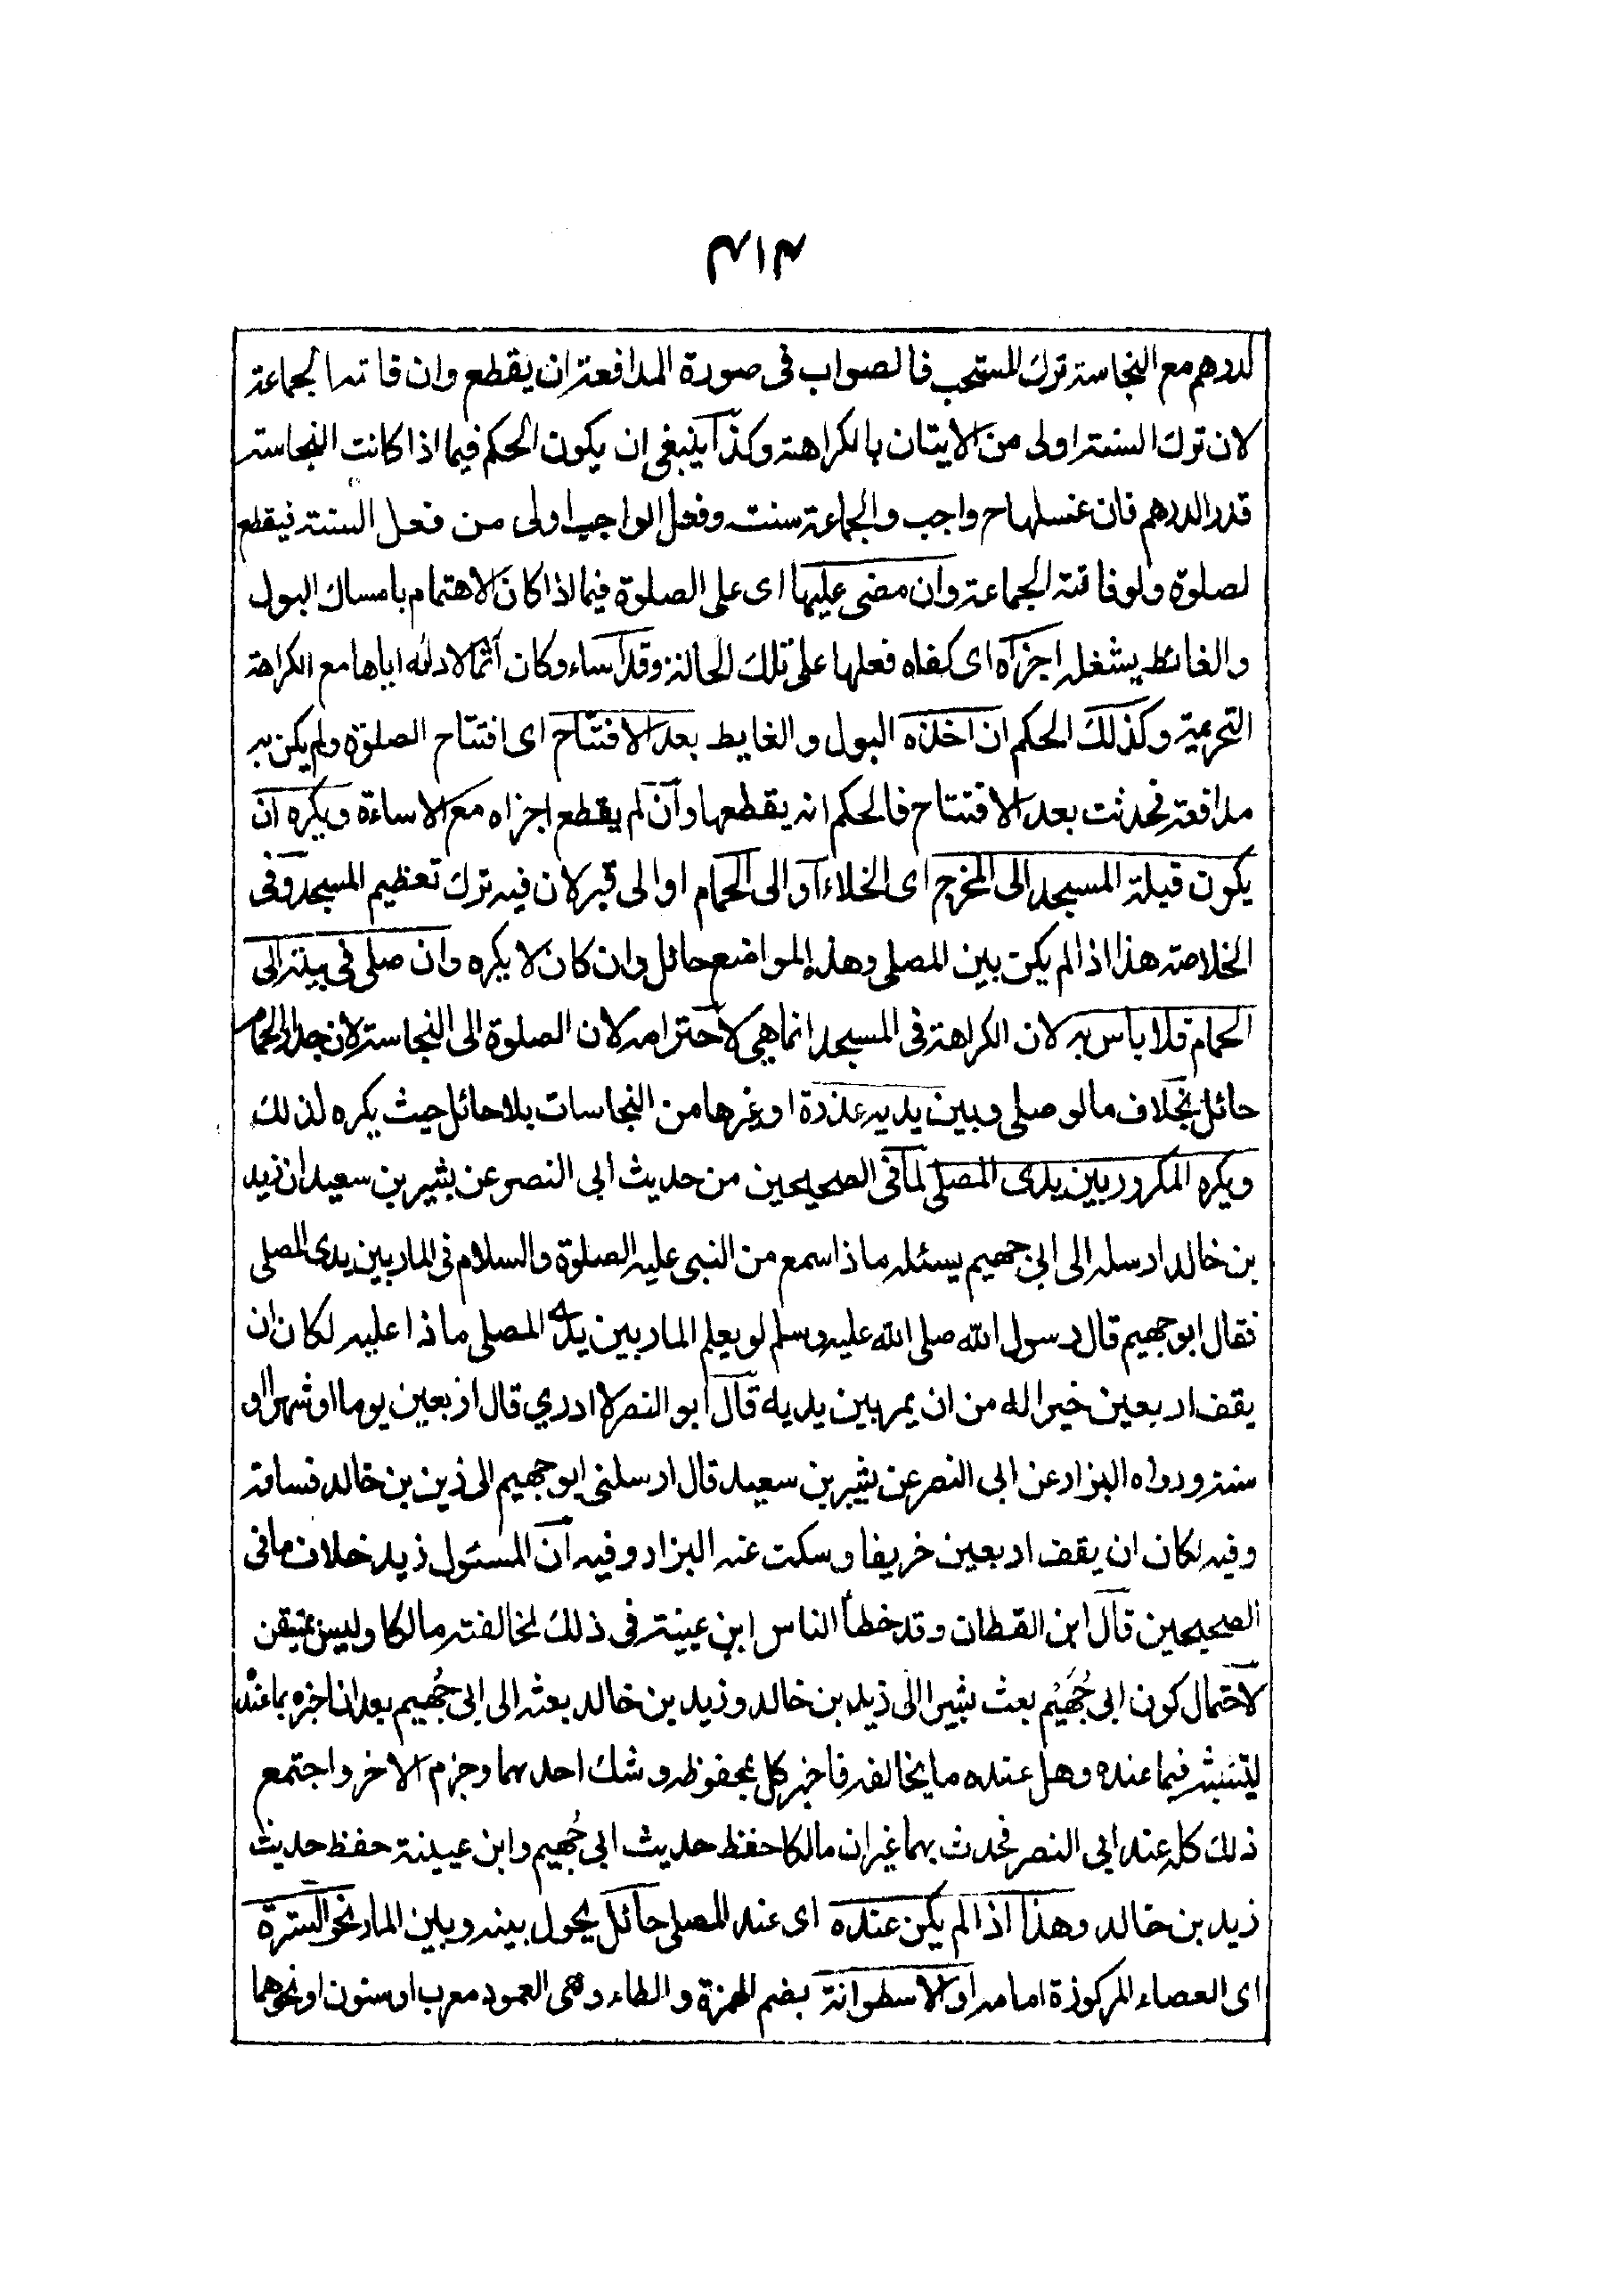 ۴۱۳
لدرهم مع النجاسة ترك المستحب فالصواب فى صورة المدافعة ان يقطع وان فاتته الجماعة
لان ترك السنة اولى من الايتان بالكراهة وكذا ينبغى ان يكون الحكم فيما اذا كانت النجاسة
قدر الدرهم فان غسلها ح واجب والجماعة سنت وفعل الواجب اولى من فعل السنة فيقطع
لصلوة ولو فاتته الجماعة وان مضى عليها اى على الصلوة فيما اذا كان الاهتمام بامساك البول
والغائط يشغله اجزاه اى كفاه فعلها على تلك الحالة وقد اساء وكان آثما لادائه اياها مع الكراهة
التحريمية وكذلك الحكم ان اخذه البول والغايط بعد الافتتاح اى افتتاح الصلوة ولم يكن به
مدافعة فحدثت بعد الافتتاح فالحكم انه يقطعها وان لم يقطع اجزاه مع الاساءة ويكره ان
يكون قبلة المسجد الى المخرج اى الخلاء او الى الحمام او الى قبر لان فيه ترك تعظيم المسجد وفى
الخلاصة هذا اذا لم يكن بين المصلى وهذه المواضع حائل وان كان لا يكره وان صلى فى بيته الى
الحمام فلا باس به لان الكراهة فى المسجد انما هي لاحترامه لان الصلوة الى النجاسة لان جدار الحمام
حائل بخلاف ما لو صلى وبين يديه عذرة او غيرها من النجاسات بلا حائل حيث يكره لذلك
ويكره المكرور بين يدى المصلى لما فى الصحيحين من حديث أبى النصر عن بشير بن سعيد ان زيد
بن خالد ارسله الى ابى جهيم يسئله ماذا سمع من النبى عليه الصلوة والسلام فى المار بين يدى المصلى
فقال ابو جهيم قال رسول الله صلى الله عليه وسلم لو يعلم المار بين يدى المصلى ماذا عليه لكان ان
يقف اربعين خيرا له من ان يمر بين يديه قال ابو النصر لا ادري قال اربعين يوما او شهرا او
سنة ورواه البزار عن ابى النصر عن بشير بن سعيد قال ارسلنى ابو جهيم الى زين بن خالد فساقه
وفيه لكان ان يقف اربعين خريفا وسكت عنه البزار وفيه ان المسئول زيد خلاف ما فى
الصحيحين قال ابن القطان وقد خطأ الناس ابن عيينة فى ذلك لمخالفته مالكا وليس بمتيقن
لاحتمال كون ابى جُهَيْم بعث بشيرا الى زيد بن خالد وزيد بن خالد بعثه الى ابى جُهيم بعد ان اخبره بما عنده
ليتثبت فيما عنده وهل عنده ما يخالفه فاخبر كل بمحفوظه وشك احدهما وجزم الاخر واجتمع
ذلك كله عند ابى النصر فحدث بهما غير ان مالكا حفظ حديث ابى جُهيم وابن عيينة حفظ حديث
زيد بن خالد وهذا اذا لم يكن عنده اى عند المصلى حائل يحول بينه وبين المار نحو السترة
اى العصاء المركوزة امامه او الاسطوانة بضم الهمزة والطاء وهى العمود معرب اوستون او نحوهما